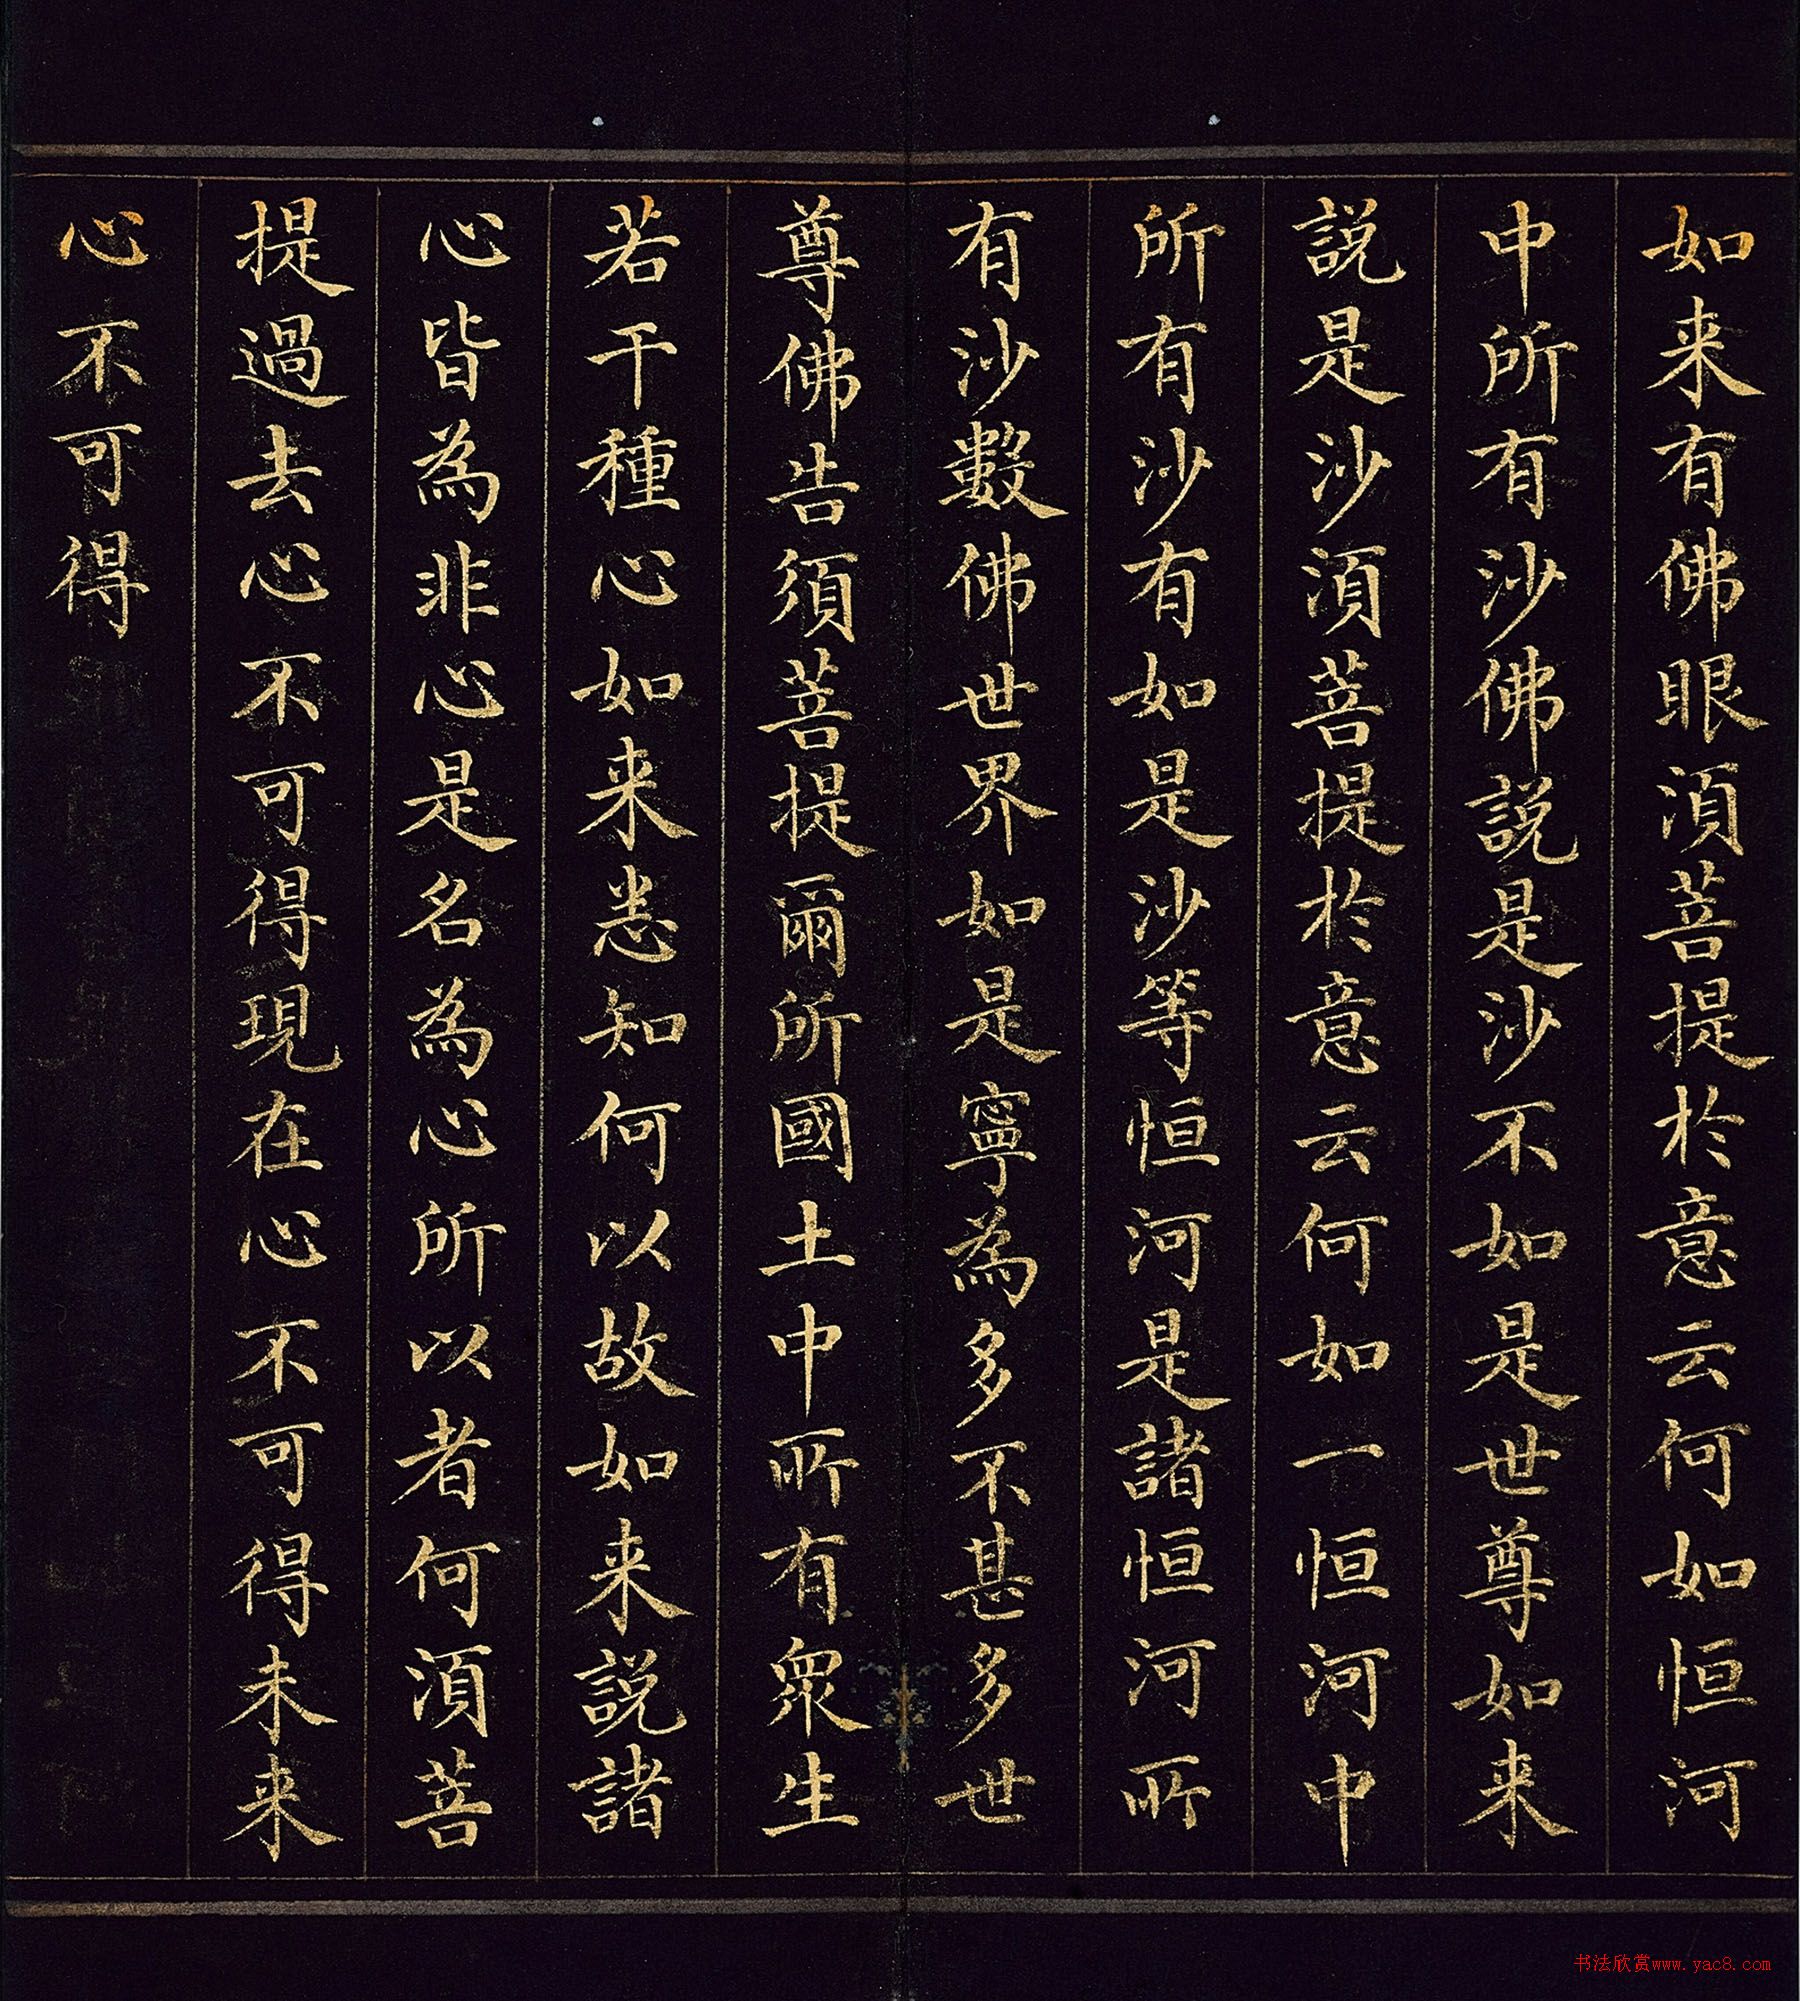 如来有佛眼湏菩提於意云何如恒河
中所有沙佛説是沙不如是世尊如来
説是沙湏菩提於意云何如一恒河中
所有沙有如是沙等恒河是諸恒河所
有沙數佛世界如是寧為多不甚多世
尊佛告須菩提爾所國土中所有衆生
若干種心如来悉知何以故如来説諸
心皆為非心是名為心所以者何湏菩
提過去心不可得現在心不可得未来
心不可得
书法欣赏www.yac8.com